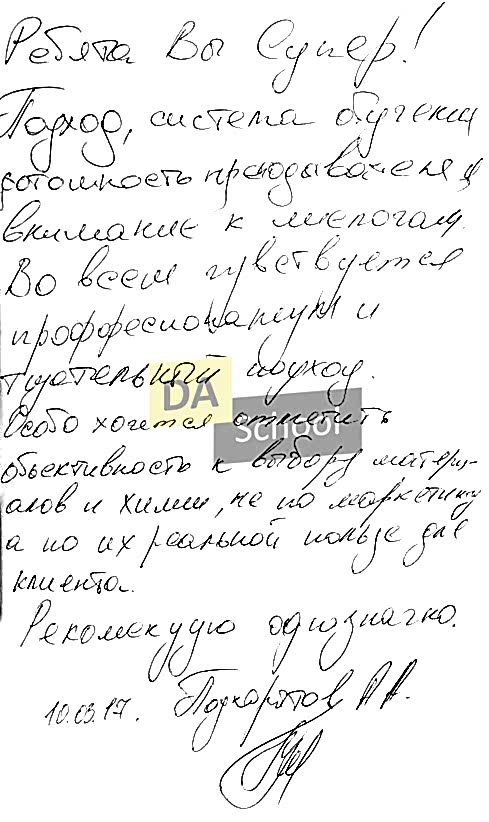 Ребята Вы Супер!
Подход, система обучения
дотошность преподавателя
внимание к мелочам.
Во всем чувствуется
профессионализм и
тщательный подход.
DA
School
Особо хочется отметить
объективность к выбору матери-
алов и химии, не по маркетингу
а по их реальной пользе для
клиента.
Рекомендую однозначно.
10.03.17.